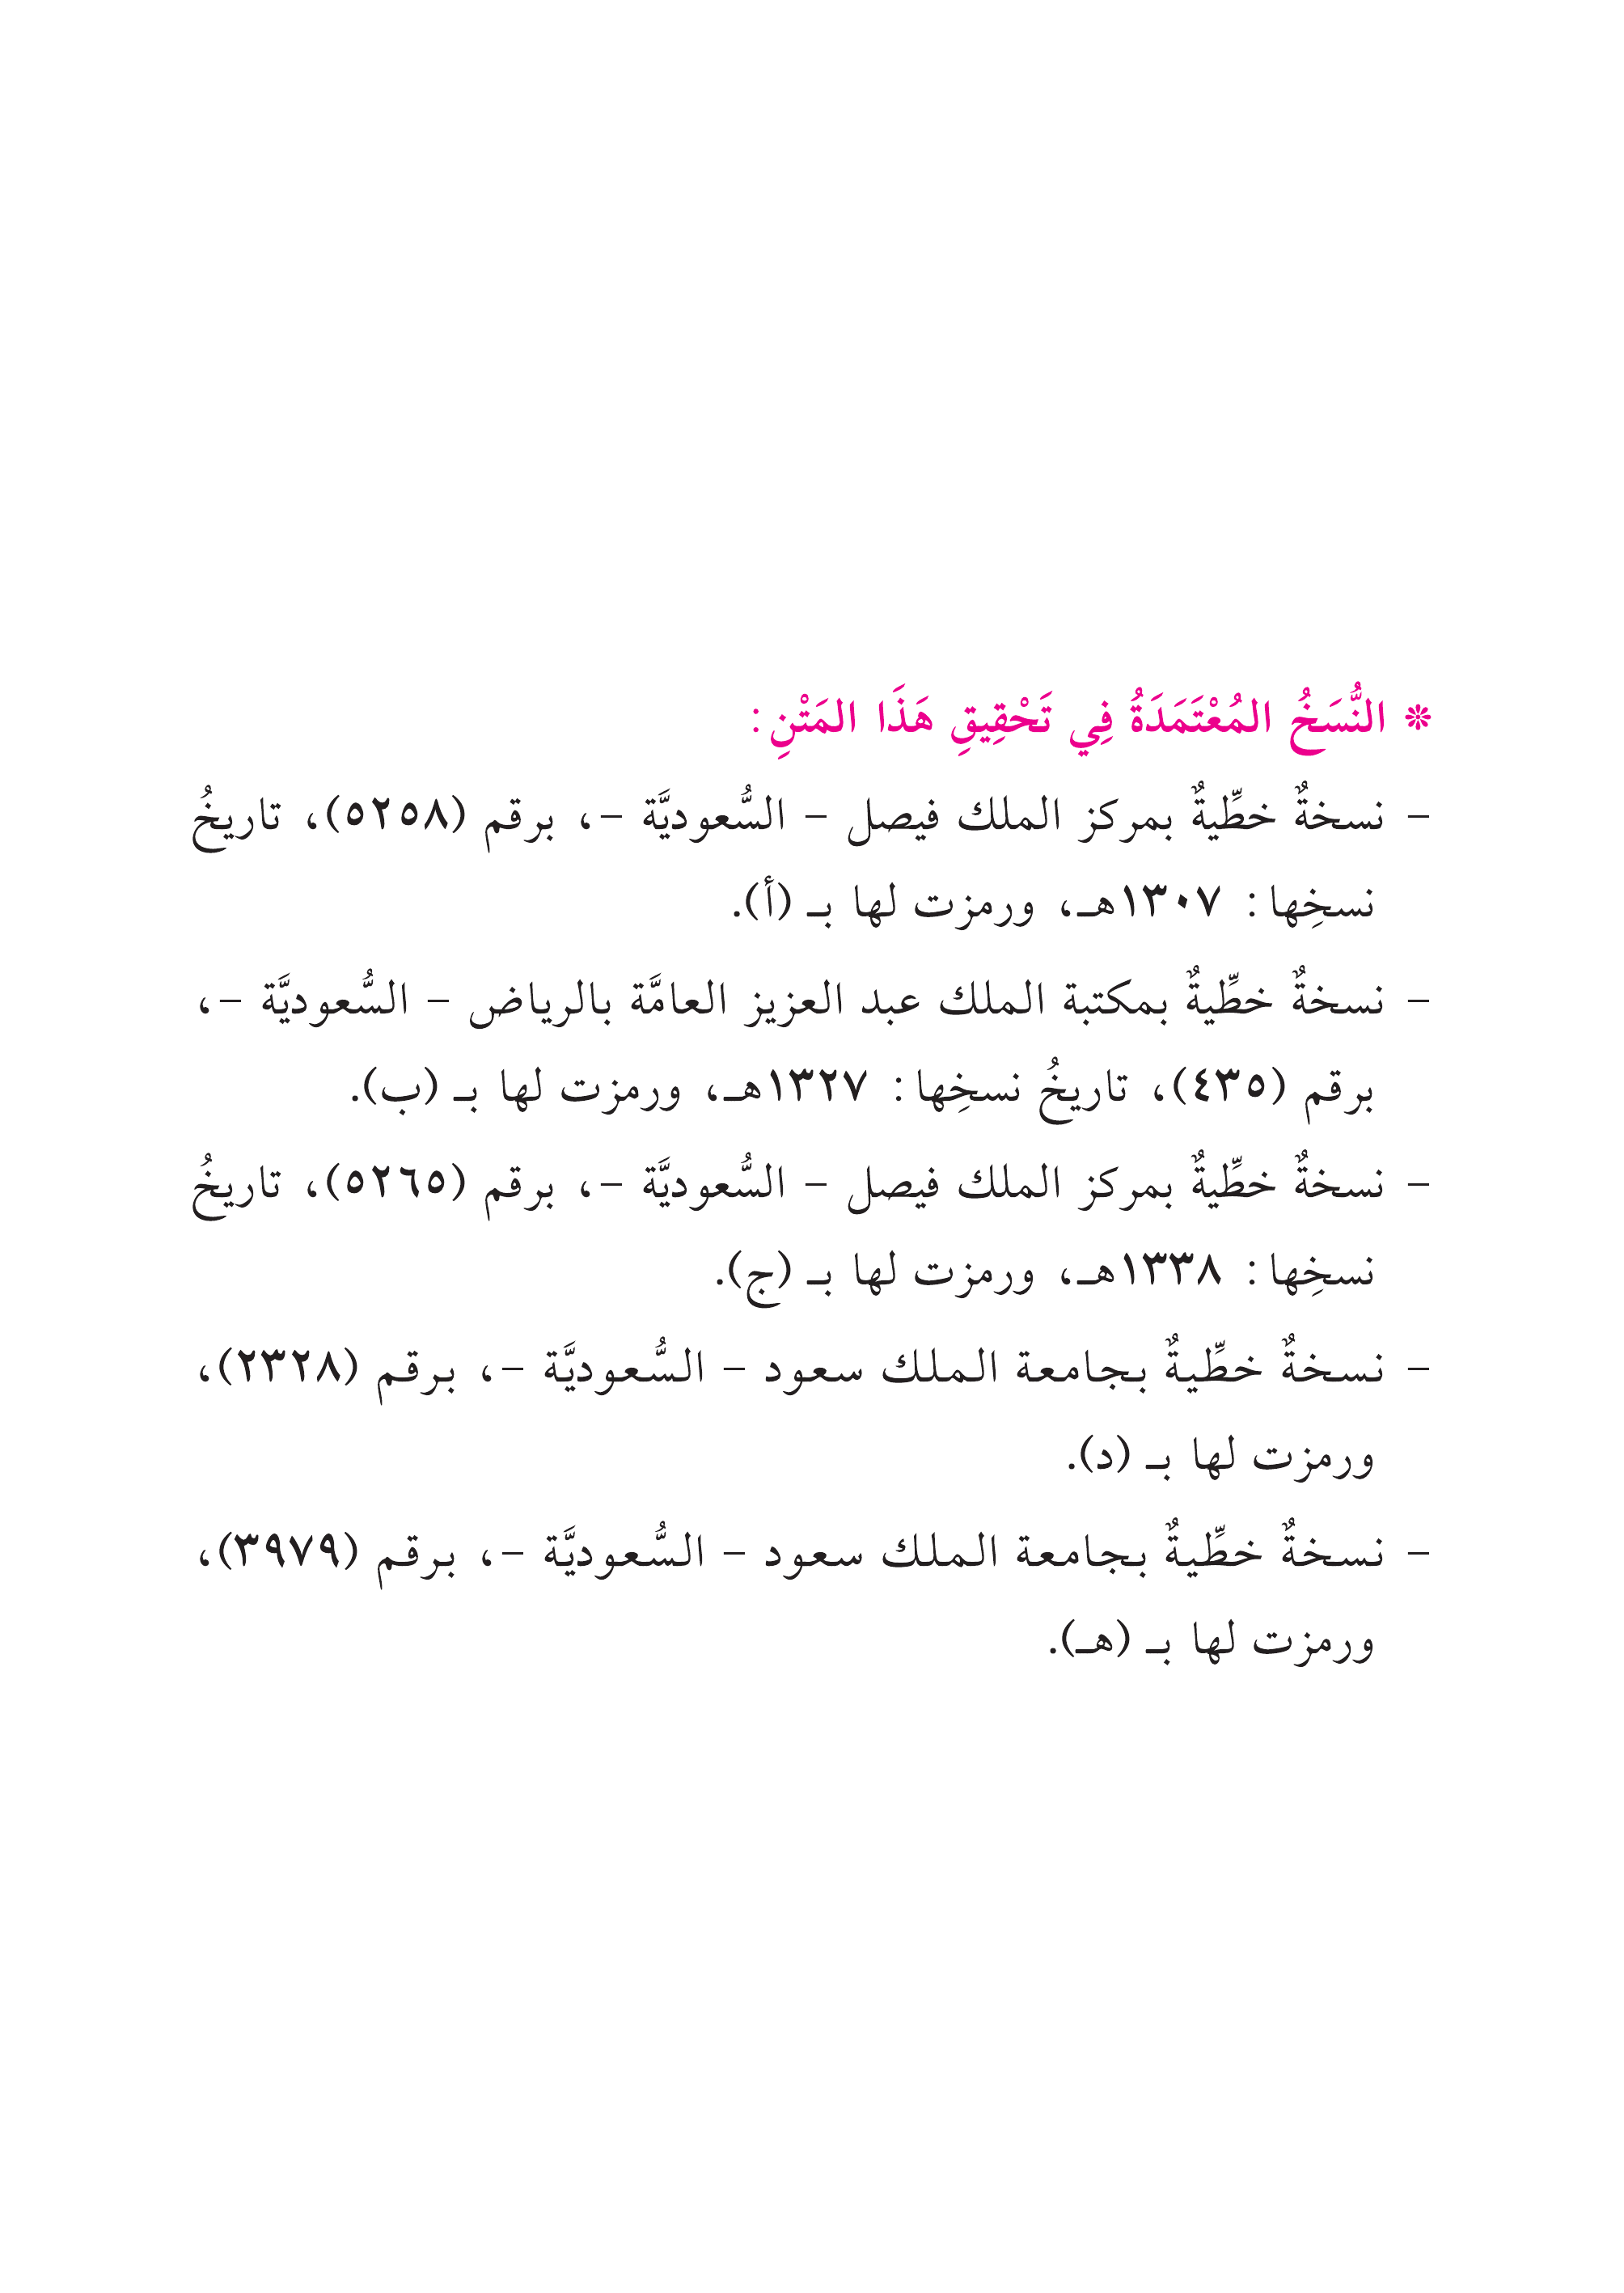 * النُّسَخُ المُعْتَمَدَةُ فِي تَحْقِيقِ هَذَا المَتْنِ:
- نسخةٌ خطِّيةٌ بمركز الملك فيصل - السُّعوديَّة -، برقم (٥٢٥٨)، تاريخُ
نسخِها: ١٣٠٧هـ، ورمزت لها بـ (أ).
- نسخةٌ خطِّيةٌ بمكتبة الملك عبد العزيز العامَّة بالرياض - السُّعوديَّة -،
برقم (٤٣٥)، تاريخُ نسخِها: ١٣٢٧هـ، ورمزت لها بـ (ب).
- نسخةٌ خطِّيةٌ بمركز الملك فيصل - السُّعوديَّة -، برقم (٥٢٦٥)، تاريخُ
نسخِها: ١٣٣٨هـ، ورمزت لها بـ (ج).
- نسخةٌ خطِّيةٌ بجامعة الملك سعود - السُّعوديَّة -، برقم (٢٣٢٨)،
ورمزت لها بـ (د).
- نسخةٌ خطِّيةٌ بجامعة الملك سعود - السُّعوديَّة -، برقم (٣٩٧٩)،
ورمزت لها بـ (هـ).